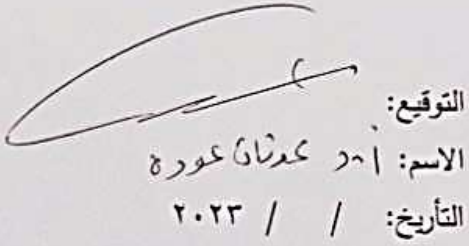 التوقيع:
الاسم: أ.د عدنان عودة
التأريخ: / / ٢٠٢٣